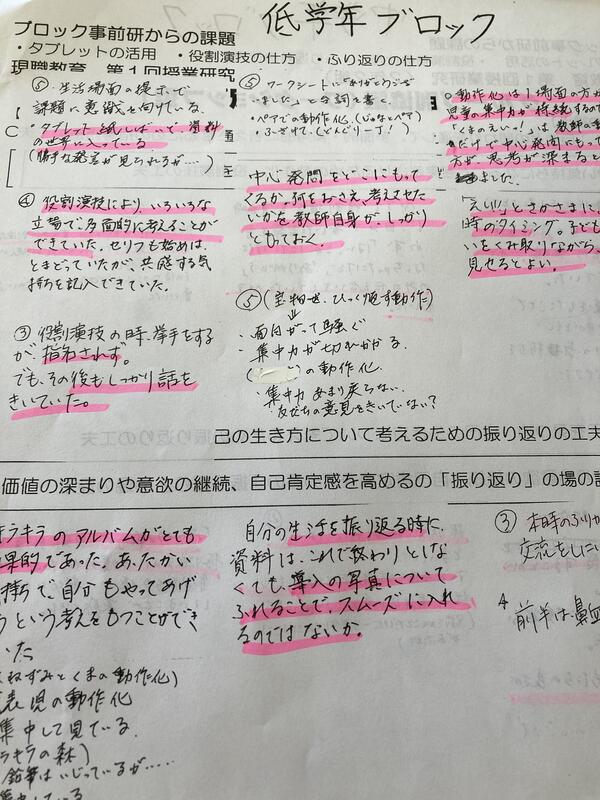 低学年ブロック
ブロック事前研からの課題
・タブレットの活用　・役割演技の仕方　・ふり返りの仕方
現職教育　第1回授業研究
⑤・生活場面の提示で
課題に意識を向けている。
・タブレット紙しばいで、資料
の世界に入っている
(勝手な発言が見られるが…)
④ 役割演技により、いろいろな
立場で、多面的に考えることが
できていた。セリフも始めは、
とまどっていたが、共感する気
持ちを記入できていた。
③ 役割演技の時、挙手をする
が、指名されず。
でも、その後もしっかり話を
きいていた。
⑤ ワークシートに「ありがとうござい
ました」と台詞を書く。
・ペアでの動作化
・ふざけて。
中心発問をどこにもって
くるか、何をおさえ、考えさせた
いかを教師自身が、しっかり
ともっておく。
⑤(宝物を、ひっくり返す動作)
↓
・面白がって騒ぐ
・集中力が切れかかる。
の動作化
・集中力 あまり戻らない。
友だちの意見をきいていない?
○動作化は1場面の方が
児童の集中力が持続するので
「くまのえいっ!」は教師の
だけで中心発問にもって
方が、思考が深まると
ました。
「えいっ」とさかさまに
時のタイミング。子ども
いをくみ取りながら、
見せるとよい。
己の生き方について考えるための振り返りの工夫
価値の深まりや意欲の継続、自己肯定感を高めるの「振り返り」の場の
キラキラのアルバムがとても
果的であった。あたたかい
持ちで自分もやってあげ
うという考えをもつことができ
いた
ねずみとくまの動作化)
表児の動作化
集中して見ている。
ラキラの森)
鉛筆はいじっているが……
集中している
自分の生活を振り返る時に、
資料は、これで終わりとしな
くても、導入の写真について
ふれることで、スムーズに入れ
るのではないか。
③ 本時のふりか
交流をしにい
4
前半は、鼻血